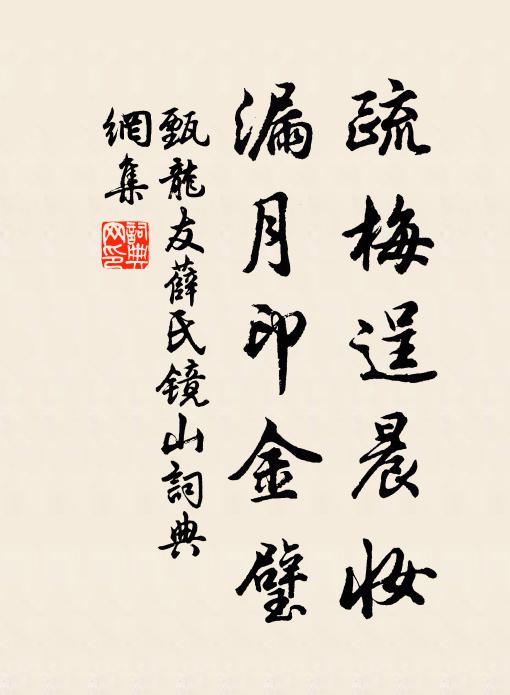 疏梅逞晨妆
漏月印金璧
甄龍友薛氏镜山詞典
網集
詞典网印